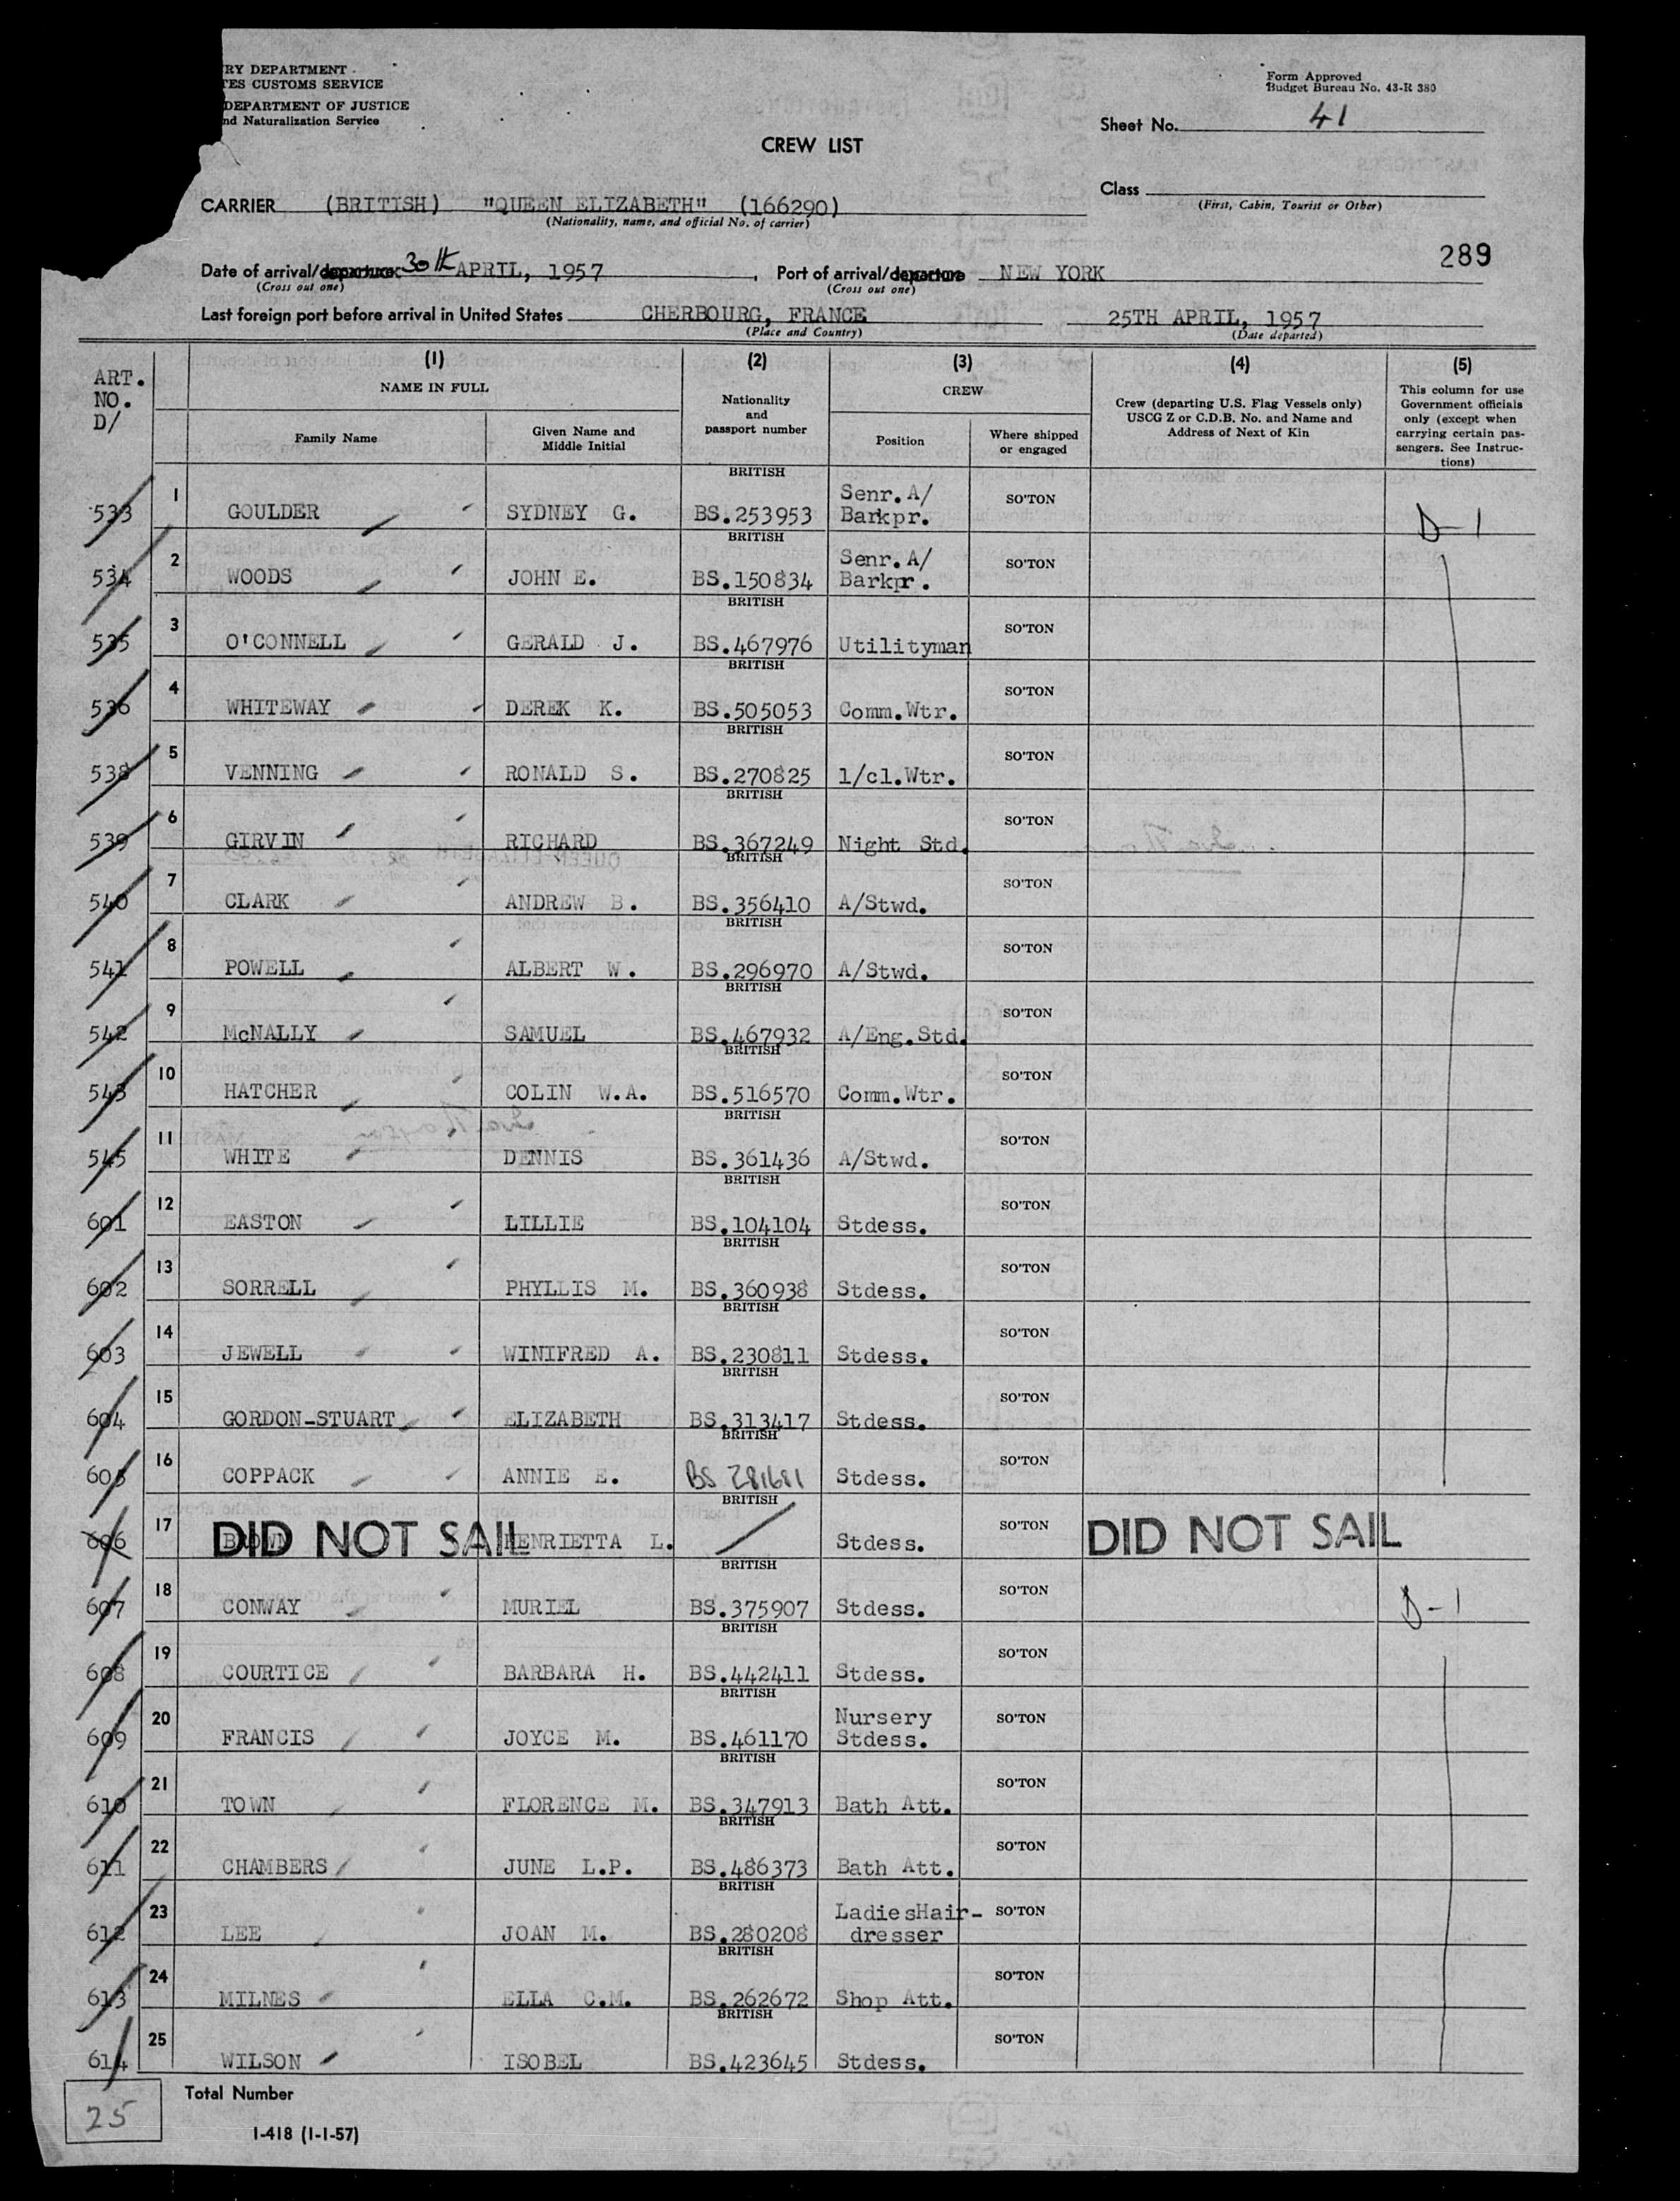 RY DEPARTMENT
TES CUSTOMS SERVICE
DEPARTMENT OF JUSTICE
nd Naturalization Service
Form Approved
Budget Bureau No. 43-R 380
Sheet No. 41
CREW LIST
Class
(First, Cabin, Tourist or Other)
CARRIER (BRITISH) "QUEEN ELIZABETH" (166290)
(Nationality, name, and official No. of carrier)
289
Date of arrival/departure: 30th APRIL, 1957, Port of arrival/departure NEW YORK
(Cross out one) (Cross out one)
Last foreign port before arrival in United States CHERBOURG, FRANCE 25TH APRIL, 1957
(Place and Country) (Date departed)
ART. NO. D/
(1) NAME IN FULL
Family Name
Given Name and Middle Initial
(2) Nationality and passport number
(3) CREW
Position
Where shipped or engaged
(4) Crew (departing U.S. Flag Vessels only) USCG Z or C.D.B. No. and Name and Address of Next of Kin
(5) This column for use Government officials only (except when carrying certain passengers. See Instructions)
533 1 GOULDER SYDNEY G. BRITISH BS.253953 Senr.A/ Barkpr. SO'TON D-1
534 2 WOODS JOHN E. BRITISH BS.150834 Senr.A/ Barkpr. SO'TON
535 3 O'CONNELL GERALD J. BRITISH BS.467976 Utilityman SO'TON
536 4 WHITEWAY DEREK K. BRITISH BS.505053 Comm.Wtr. SO'TON
538 5 VENNING RONALD S. BRITISH BS.270825 1/cl.Wtr. SO'TON
539 6 GIRVIN RICHARD BRITISH BS.367249 Night Std. SO'TON
540 7 CLARK ANDREW B. BRITISH BS.356410 A/Stwd. SO'TON
541 8 POWELL ALBERT W. BRITISH BS.296970 A/Stwd. SO'TON
542 9 McNALLY SAMUEL BRITISH BS.467932 A/Eng.Std. SO'TON
543 10 HATCHER COLIN W.A. BRITISH BS.516570 Comm.Wtr. SO'TON
545 11 WHITE DENNIS BRITISH BS.361436 A/Stwd. SO'TON
601 12 EASTON LILLIE BRITISH BS.104104 Stdess. SO'TON
602 13 SORRELL PHYLLIS M. BRITISH BS.360938 Stdess. SO'TON
603 14 JEWELL WINIFRED A. BRITISH BS.230811 Stdess. SO'TON
604 15 GORDON-STUART ELIZABETH BRITISH BS.313417 Stdess. SO'TON
605 16 COPPACK ANNIE E. BRITISH BS 281681 Stdess. SO'TON
606 17 BROWN DID NOT SAIL HENRIETTA L. BRITISH Stdess. SO'TON DID NOT SAIL
607 18 CONWAY MURIEL BRITISH BS.375907 Stdess. SO'TON D-1
608 19 COURTICE BARBARA H. BRITISH BS.442411 Stdess. SO'TON
609 20 FRANCIS JOYCE M. BRITISH BS.461170 Nursery Stdess. SO'TON
610 21 TOWN FLORENCE M. BRITISH BS.347913 Bath Att. SO'TON
611 22 CHAMBERS JUNE L.P. BRITISH BS.486373 Bath Att. SO'TON
612 23 LEE JOAN M. BRITISH BS.280208 LadiesHair- dresser SO'TON
613 24 MILNES ELLA C.M. BRITISH BS.262672 Shop Att. SO'TON
614 25 WILSON ISOBEL BRITISH BS.423645 Stdess. SO'TON
25 Total Number
I-418 (1-1-57)